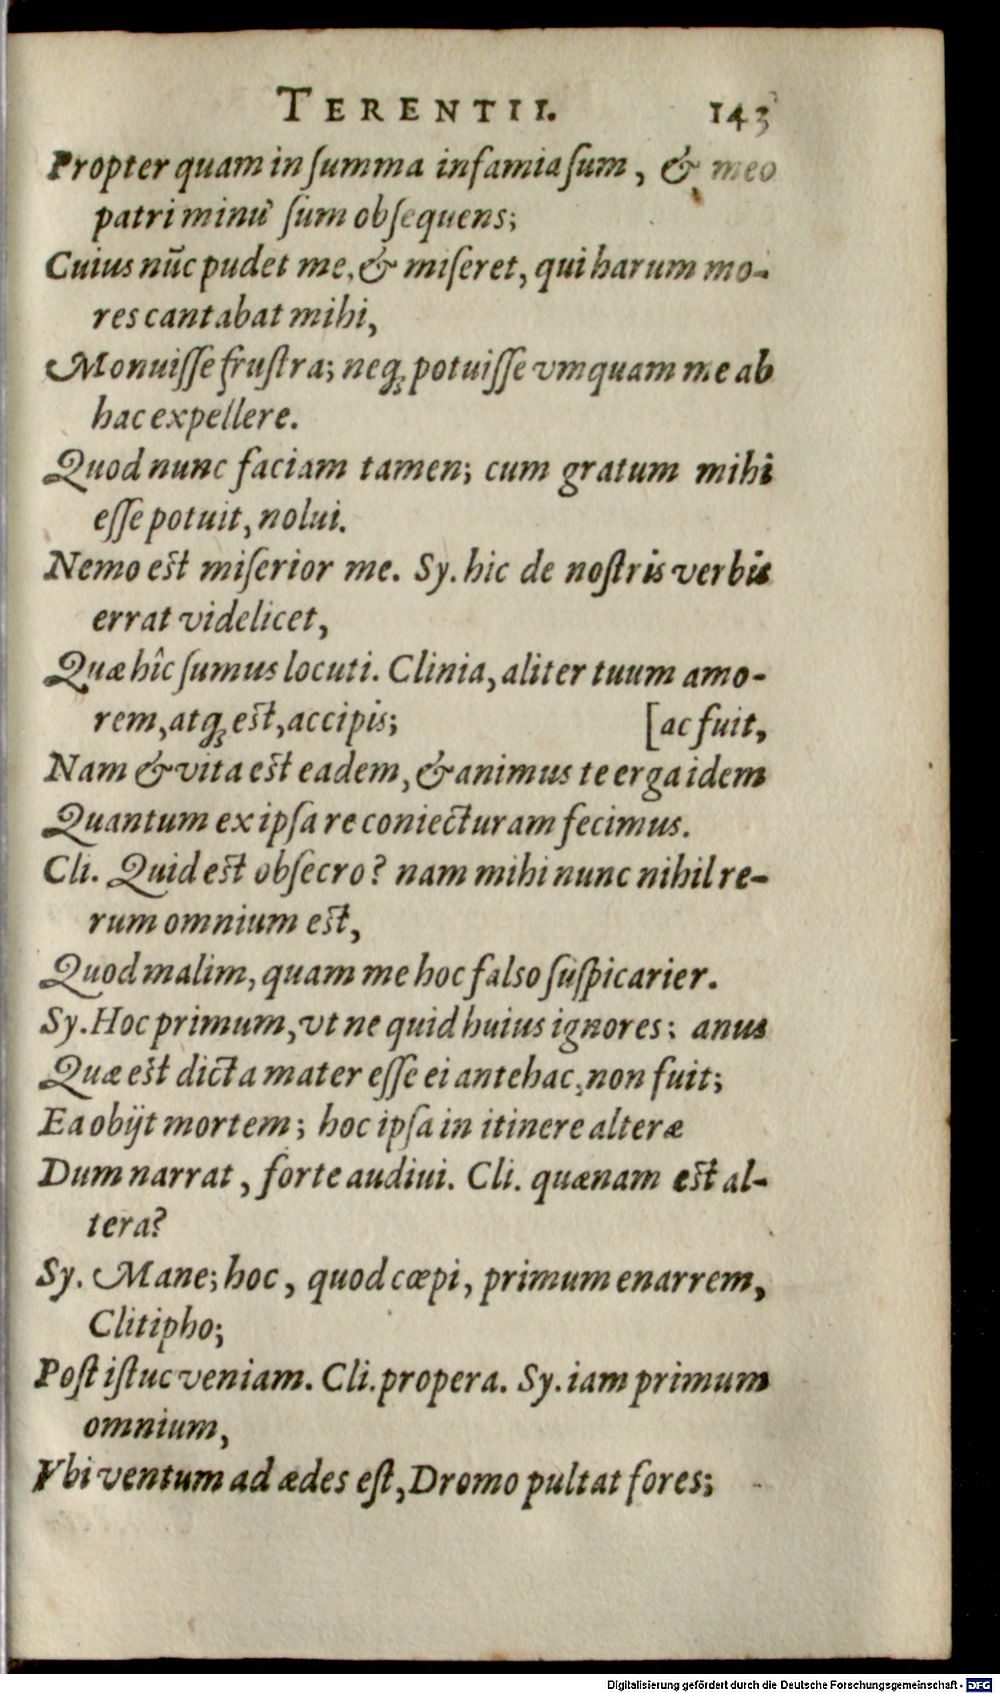 TERENTII. 143
Propter quam in ſumma infamia ſum, & meo
patri minu' ſum obſequens;
Cuius nūc pudet me, & miſeret, qui harum mo-
res cantabat mihi,
Monuiſſe fruſtra; neqꝫ potuiſſe vmquam me ab
hac expellere.
Quod nunc faciam tamen; cum gratum mihi
eſſe potuit, nolui.
Nemo eſt miſerior me. Sy. hic de noſtris verbis
errat videlicet,
Quæ hîc ſumus locuti. Clinia, aliter tuum amo-
rem, atqꝫ eſt, accipis; [ac fuit,
Nam & vita eſt eadem, & animus te erga idem
Quantum ex ipſa re coniecturam fecimus.
Cli. Quid eſt obſecro? nam mihi nunc nihil re-
rum omnium eſt,
Quod malim, quam me hoc falso ſuſpicarier.
Sy. Hoc primum, vt ne quid huius ignores: anus
Quæ eſt dicta mater eſſe ei antehac, non fuit;
Ea obijt mortem; hoc ipſa in itinere alteræ
Dum narrat, forte audiui. Cli. quænam eſt al-
tera?
Sy. Mane; hoc, quod cœpi, primum enarrem,
Clitipho;
Poſt iſtuc veniam. Cli. propera. Sy. iam primum
omnium,
Vbi ventum ad ædes eſt, Dromo pultat fores;
Digitalisierung gefördert durch die Deutsche Forschungsgemeinschaft - DFG